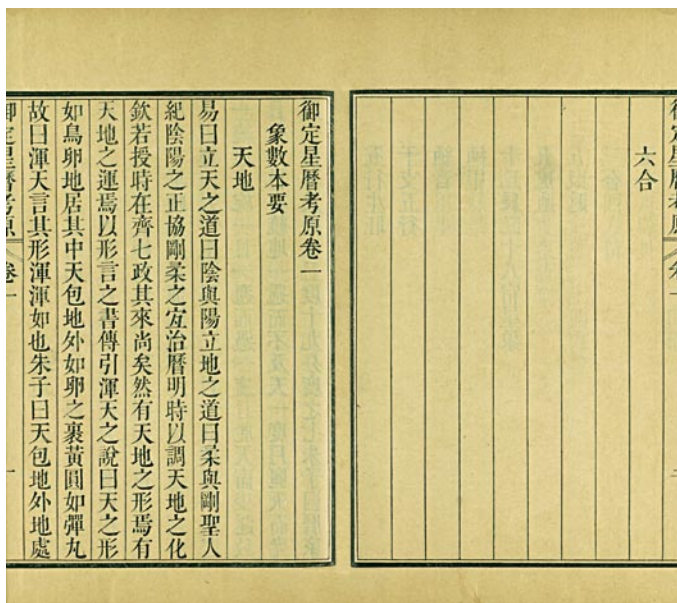 御定星曆考原
六合
御定星曆考原卷一
象數本要
天地
易曰立天之道曰陰與陽立地之道曰柔與剛聖人
紀陰陽之正協剛柔之宜治曆明時以調天地之化
欽若授時在齊七政其來尚矣然有天地之形焉有
天地之運焉以形言之書傳引渾天之說曰天之形
如鳥卵地居其中天包地外如卵之裹黃圓如彈丸
故曰渾天言其形渾渾如也朱子曰天包地外地處
御定星曆考原 卷一 一